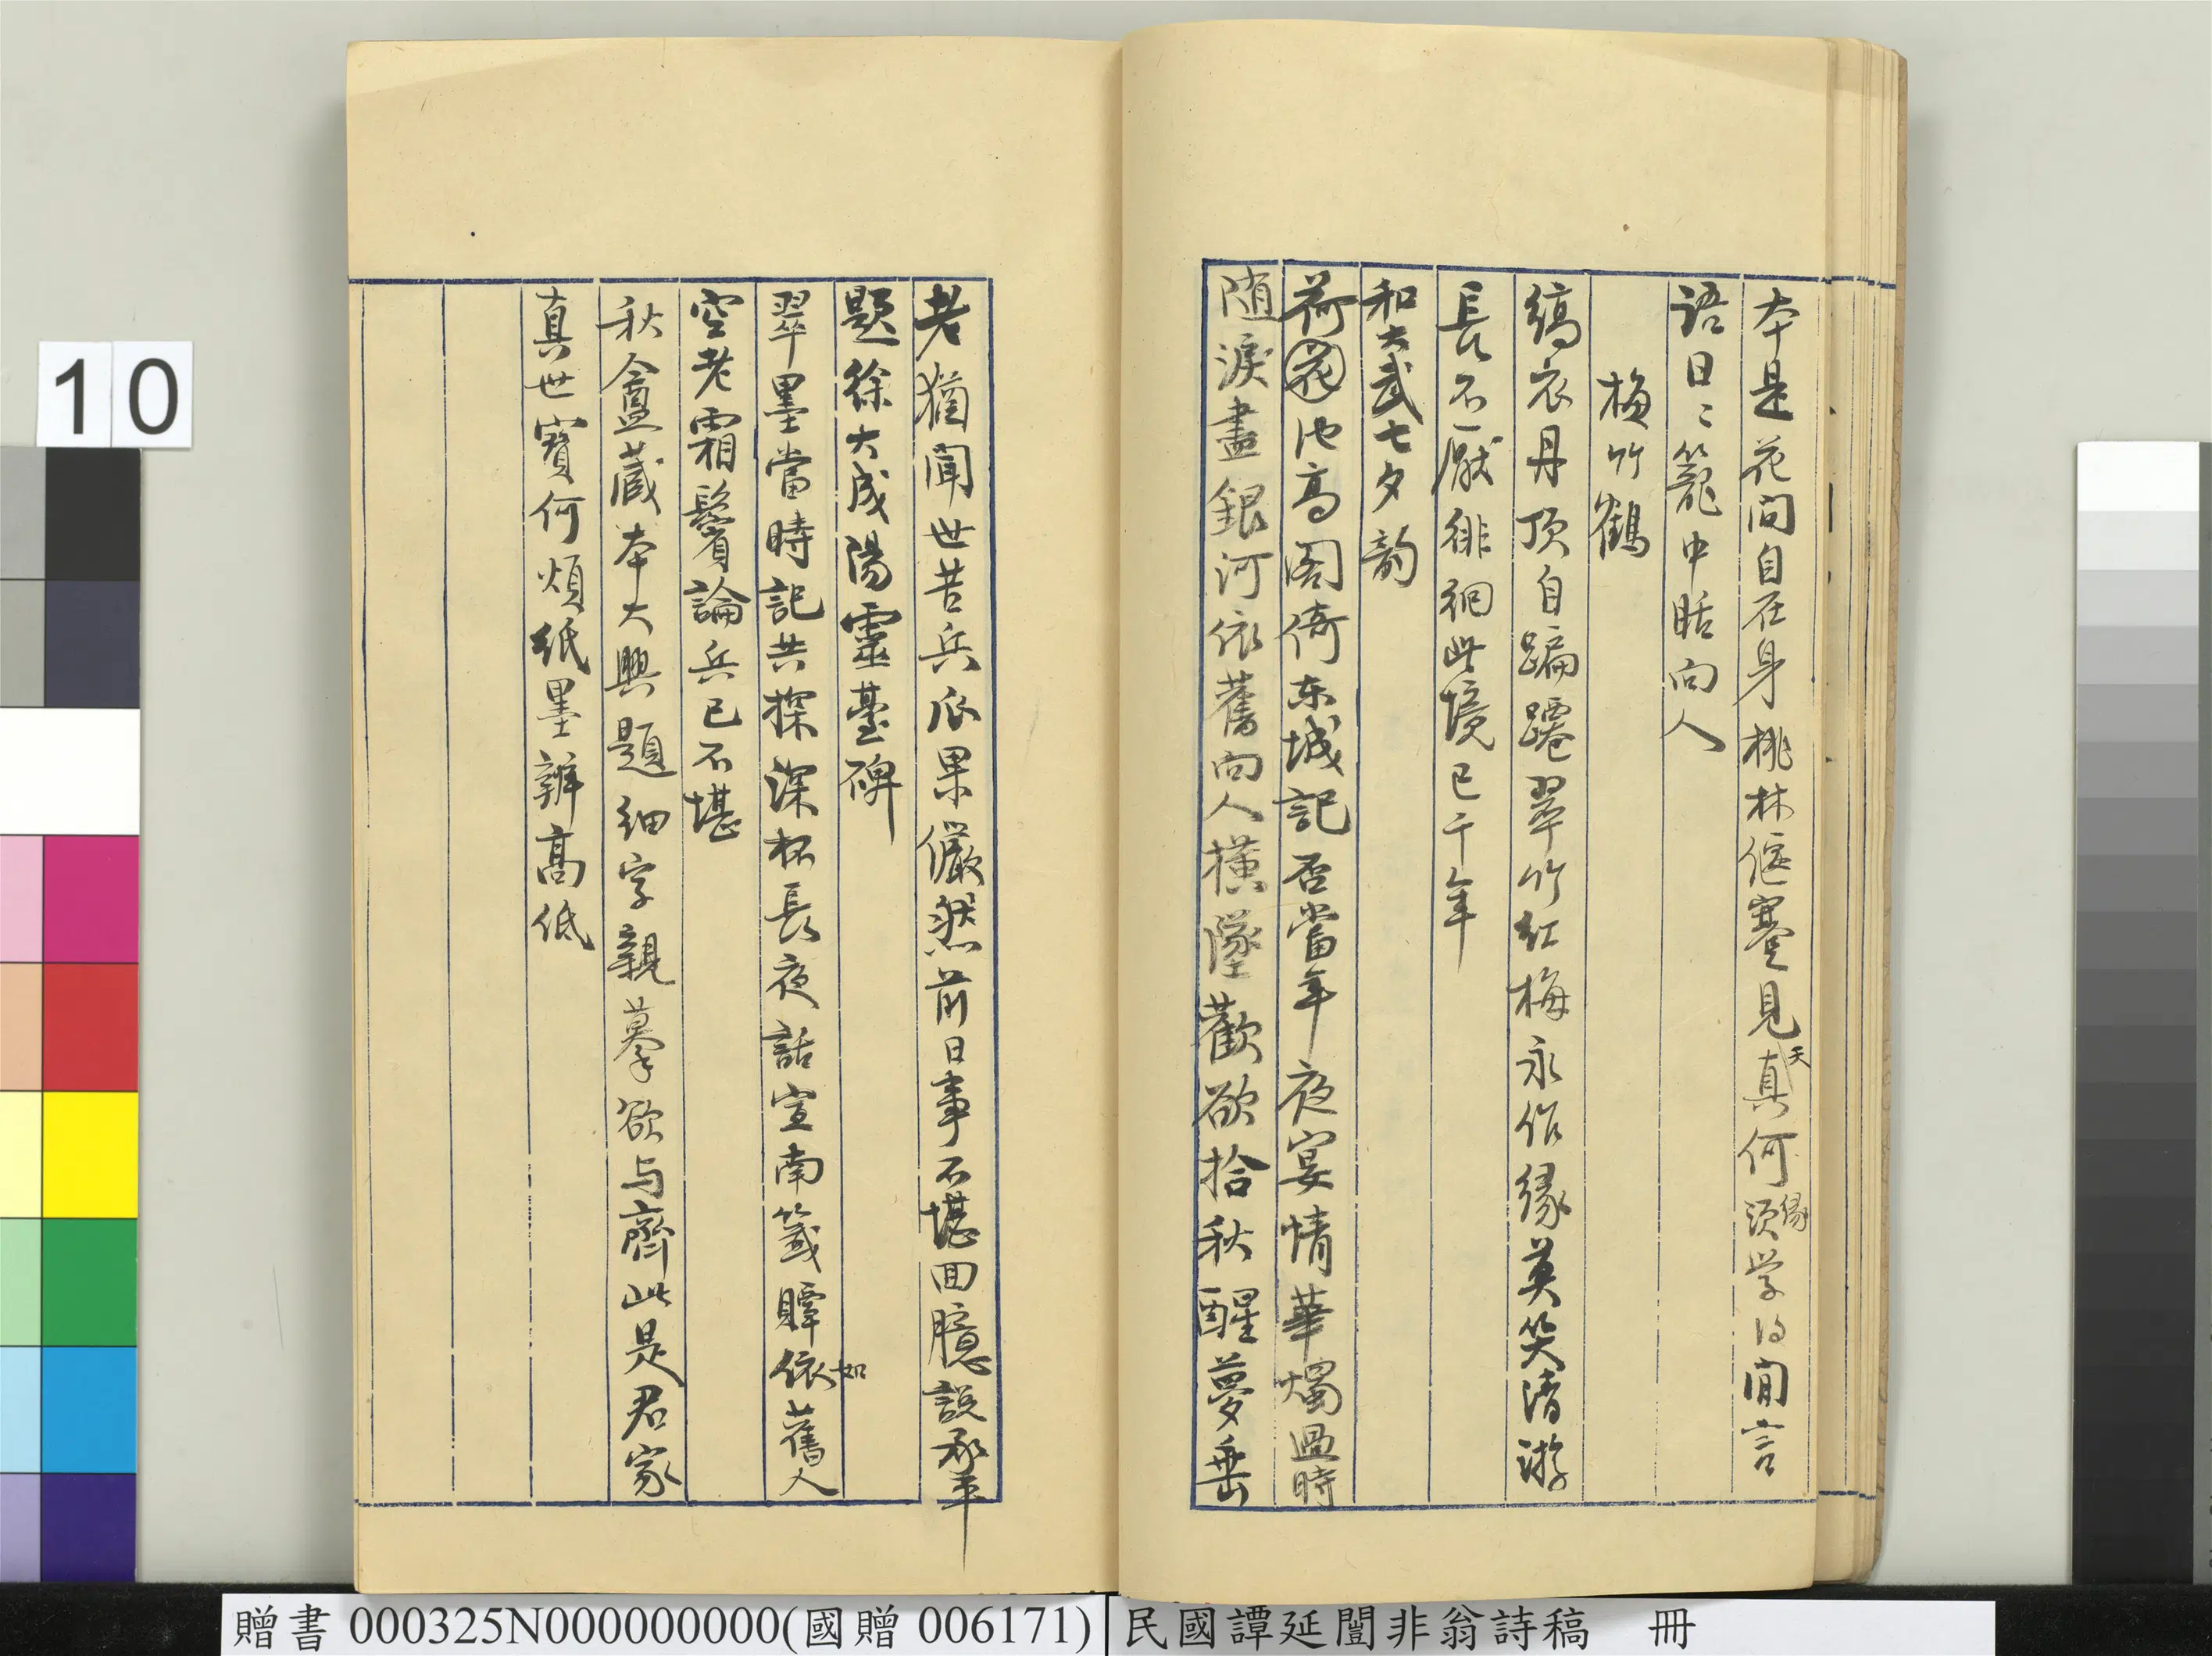 本是花間自在身桃林偃蹇見真何須学得閒言
天
緣
語日〻籠中聒向人
梅竹鶴
縞衣丹頂自蹁躚翠竹紅梅永作緣莫笑清游
長不厭徘徊此境已千年
和大武七夕韵
荷花池高閣倚东城記否當年夜宴情華燭過時
随淚盡銀河依舊向人橫墜歡欲拾秋醒夢垂
老猶聞世苦兵瓜果儼然前日事不堪回臆說承平
題徐大咸陽靈臺碑
翠墨當時記共探深杯長夜話宣南籖贉依舊人
如
空老霜鬢論兵已不堪
秋盦蔵本大興題細字親摹欲与齊此是君家
真世寶何煩紙墨辨高低
10
贈書 000325N000000000(國贈 006171)
民國譚延闓非翁詩稿 冊